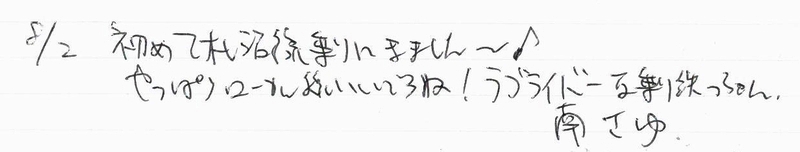 8/2 初めて札沼線乗りにきました〜♪
やっぱりローカル線いいですね!ラブライバー兼乗り鉄っちゃん.
南 さゆ.